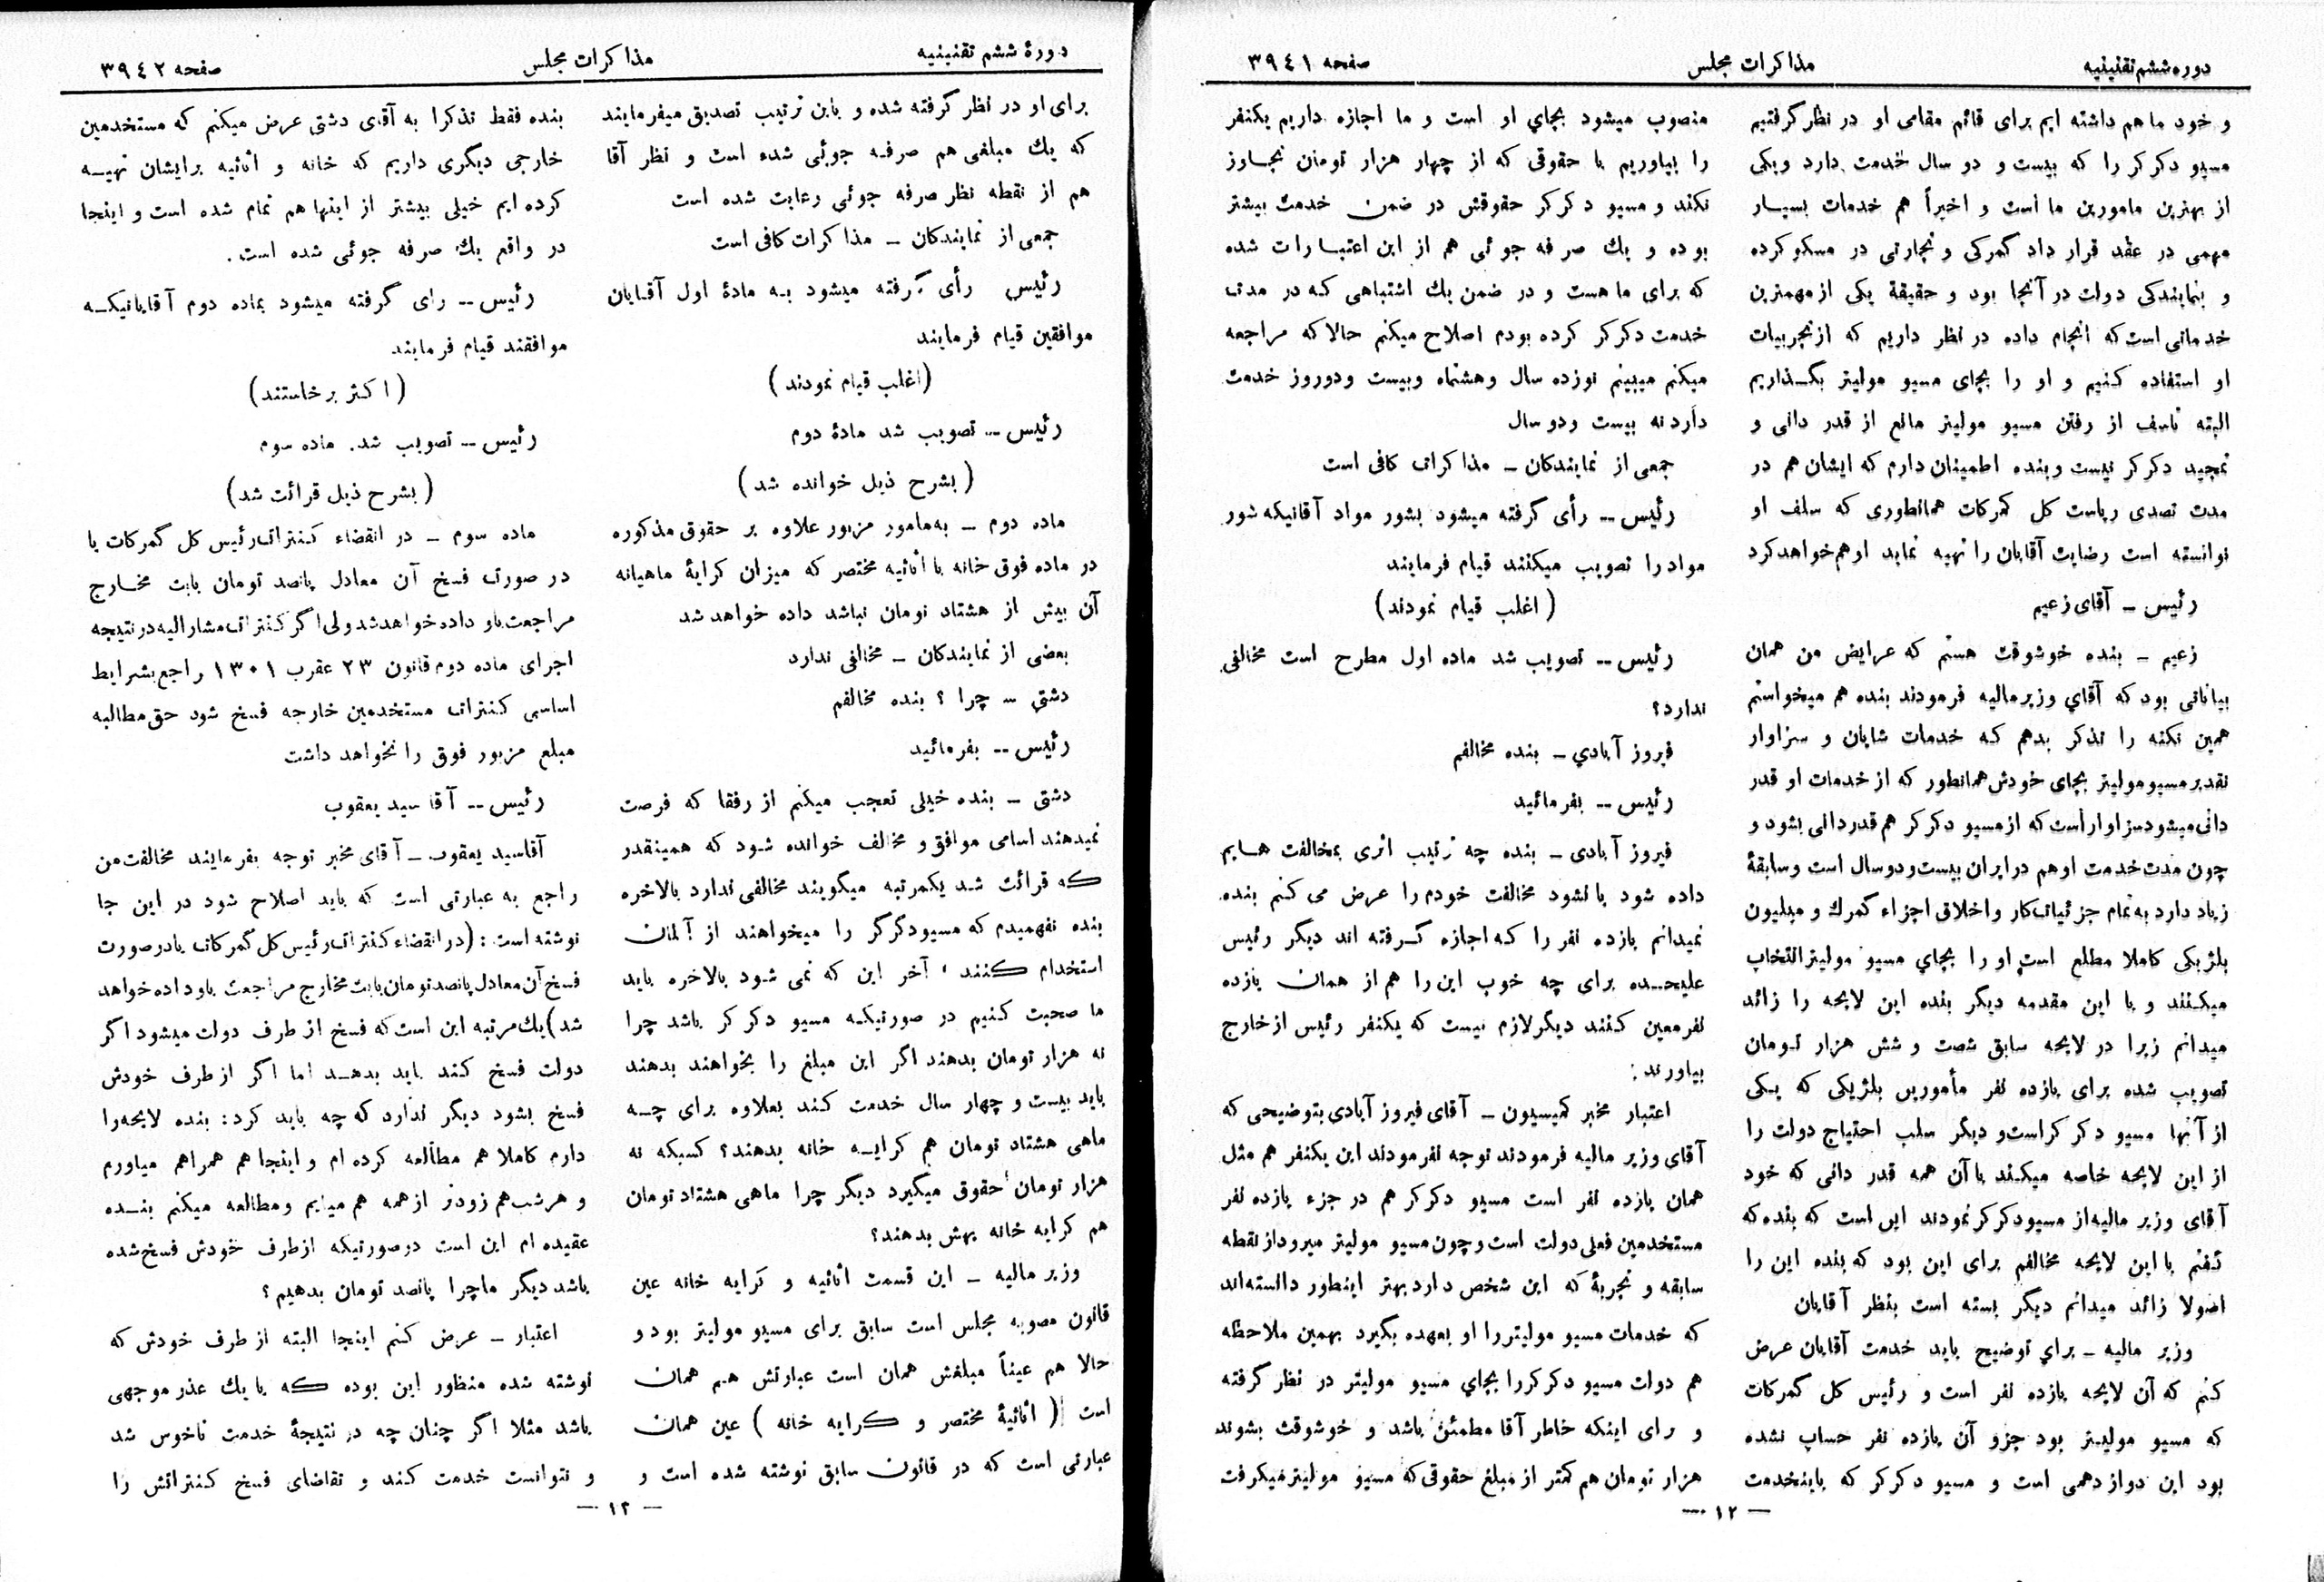 دوره ششم تقنینیه
مذاکرات مجلس
صفحه ۳۹٤۱
و خود ما هم داشته ایم برای قائم مقامی او در نظر گرفتیم
مسیو دکرکر را که بیست و دو سال خدمت دارد ویکی
از بهترین مامورین ما است و اخیراً هم خدمات بسیار
مهمی در عقد قرار داد گمرکی و تجارتی در مسکو کرده
و بنمایندگی دولت در آنجا بود و حقیقة یکی از مهمترین
خدماتی است که انجام داده در نظر داریم که از تجربیات
او استفاده کنیم و او را بجای مسیو مولیتر بگذاریم
البته تاسف از رفتن مسیو مولیتر مانع از قدر دانی و
تمجید دکرکر نیست و بنده اطمینان دارم که ایشان هم در
مدت تصدی ریاست کل گمرکات همانطوری که سلف او
توانسته است رضایت آقایان را تهیه نماید او هم خواهد کرد
رئیس ــ آقای زعیم
زعیم ــ بنده خوشوقت هستم که عرایض من همان
بیاناتی بود که آقاي وزیر مالیه فرمودند بنده هم میخواستم
همین نکته را تذکر بدهم که خدمات شایان و سزاوار
تقدیر مسیو مولیتر بجای خودش همانطور که از خدمات او قدر
دانی میشود سزاوار است که از مسیو دکرکر هم قدر دانی بشود و
چون مدت خدمت او هم در ایران بیست و دو سال است و سابقهٔ
زیاد دارد به تمام جزئیات کار و اخلاق اجزاء گمرك و میلیون
بلژیکی کاملا مطلع است او را بجاي مسیو مولیتر انتخاب
میکنند و با این مقدمه دیگر بنده این لایحه را زائد
میدانم زیرا در لایحه سابق شصت و شش هزار تومان
تصویب شده برای یازده نفر مأمورین بلژیکی که یکی
از آنها مسیو دکرکر است و دیگر سلب احتیاج دولت را
از این لایحه خاصه میکند با آن همه قدر دانی که خود
آقای وزیر مالیه از مسیو دکرکر نمودند این است که بنده که
گفتم با این لایحه مخالفم برای این بود که بنده این را
اصولا زائد میدانم دیگر بسته است بنظر آقایان
وزیر مالیه ــ براي توضیح باید خدمت آقایان عرض
کنم که آن لایحه یازده نفر است و رئیس کل گمرکات
که مسیو مولیتر بود جزو آن یازده نفر حساب نشده
بود این دوازدهمی است و مسیو دکرکر که باینخدمت
منصوب میشود بجاي او است و ما اجازه داریم یکنفر
را بیاوریم با حقوقی که از چهار هزار تومان تجاوز
نکند و مسیو دکرکر حقوقش در ضمن خدمت بیشتر
بوده و یك صرفه جوئی هم از این اعتبارات شده
که برای ما هست و در ضمن یك اشتباهی که در مدت
خدمت دکرکر کرده بودم اصلاح میکنم حالا که مراجعه
میکنم میبینم نوزده سال و هشتماه و بیست و دوروز خدمت
دارد نه بیست ودو سال
جمعی از نمایندکان ــ مذاکرات کافی است
رئیس ــ رأی گرفته میشود بشور مواد آقانیکه شور
مواد را تصویب میکنند قیام فرمایند
(اغلب قیام نمودند)
رئیس ــ تصویب شد ماده اول مطرح است مخالفی
ندارد؟
فیروز آبادي ــ بنده مخالفم
رئیس ــ بفرمائید
فیروز آبادی ــ بنده چه ترتیب اثری بمخالفت هایم
داده شود یا نشود مخالفت خودم را عرض می کنم بنده
نمیدانم یازده نفر را که اجازه گرفته اند دیگر رئیس
علیحده برای چه خوب این را هم از همان یازده
نفر معین کنند دیگر لازم نیست که یکنفر رئیس از خارج
بیاورند:
اعتبار مخبر کمیسیون ــ آقای فیروز آبادی بتوضیحی که
آقای وزیر مالیه فرمودند توجه نفرمودند این یکنفر هم مثل
همان یازده نفر است مسیو دکرکر هم در جزء یازده نفر
مستخدمین فعلی دولت است و چون مسیو مولیتر میرود از نقطه
سابقه و تجربهٔ که این شخص دارد بهتر اینطور دانسته‌اند
که خدمات مسیو مولیتر را او بعهده بگیرد بهمین ملاحظه
هم دولت مسیو دکرکر را بجاي مسیو مولیتر در نظر گرفته
و رای اینکه خاطر آقا مطمئن باشد و خوشوقت بشوند
هزار تومان هم کمتر از مبلغ حقوقی که مسیو مولیتر میکرفت
— ۱۲ —
دورهٔ ششم تقنینیه
مذاکرات مجلس
صفحه ۳۹٤۲
برای او در نظر گرفته شده و باین ترتیب تصدیق میفرمایند
که یك مبلغی هم صرفه جوئی شده است و نظر آقا
هم از نقطه نظر صرفه جوئی رعایت شده است
جمعی از نمایندکان ــ مذاکرات کافی است
رئیس رأی گرفته میشود به مادهٔ اول آقایان
موافقین قیام فرمایند
(اغلب قیام نمودند)
رئیس ــ تصویب شد مادهٔ دوم
(بشرح ذیل خوانده شد)
ماده دوم ــ به مامور مزبور علاوه بر حقوق مذکوره
در ماده فوق خانه با اثاثیه مختصر که میزان کرایهٔ ماهیانه
آن بیش از هشتاد تومان نباشد داده خواهد شد
بعضی از نمایندکان ــ مخالفی ندارد
دشتی ــ چرا ؟ بنده مخالفم
رئیس ــ بفرمائید
دشتی ــ بنده خیلی تعجب میکنم از رفقا که فرصت
نمیدهند اسامی موافق و مخالف خوانده شود که همینقدر
که قرائت شد یکمرتبه میگویند مخالفی ندارد بالاخره
بنده نفهمیدم که مسیو دگرگر را میخواهند از آلمان
استخدام کنند ، آخر این که نمی شود بالاخره باید
ما صحبت کنیم در صورتیکه مسیو دکرکر باشد چرا
نه هزار تومان بدهند اگر این مبلغ را بخواهند بدهند
باید بیست و چهار سال خدمت کند بعلاوه برای چه
ماهی هشتاد تومان هم کرایه خانه بدهند؟ کسیکه نه
هزار تومان حقوق میگیرد دیگر چرا ماهی هشتاد تومان
هم کرایه خانه بهش بدهند؟
وزیر مالیه ــ این قسمت اثاثیه و کرایه خانه عین
قانون مصوبه مجلس است سابق برای مسیو مولیتر بود و
حالا هم عیناً مبلغش همان است عبارتش هم همان
است (اثاثیهٔ مختصر و کرایه خانه) عین همان
عبارتی است که در قانون سابق نوشته شده است و
بنده فقط تذکرا به آقای دشتی عرض میکنم که مستخدمین
خارجی دیگری داریم که خانه و اثاثیه برایشان تهیه
کرده ایم خیلی بیشتر از اینها هم تمام شده است و اینجا
در واقع یك صرفه جوئی شده است.
رئیس ــ رای گرفته میشود بماده دوم آقایانیکه
موافقند قیام فرمایند
(اکثر برخاستند)
رئیس ــ تصویب شد. ماده سوم
(بشرح ذیل قرائت شد)
ماده سوم ــ در انقضاء کنترات رئیس کل گمرکات یا
در صورت فسخ آن معادل پانصد تومان بابت مخارج
مراجعت باو داده خواهد شد ولی اگر کنترات مشارالیه در نتیجه
اجرای ماده دوم قانون ۲۳ عقرب ۱۳۰۱ راجع بشرایط
اساسی کنترات مستخدمین خارجه فسخ شود حق مطالبه
مبلغ مزبور فوق را نخواهد داشت
رئیس ــ آقا سید یعقوب
آقاسید یعقوب ــ آقای مخبر توجه بفرمایند مخالفت من
راجع به عبارتی است که باید اصلاح شود در این جا
نوشته است: (در انقضاء کنترات رئیس کل گمرکات یا در صورت
فسخ آن معادل پانصد تومان بابت مخارج مراجعت باو داده خواهد
شد) یك مرتبه این است که فسخ از طرف دولت میشود اگر
دولت فسخ کند باید بدهد اما اگر از طرف خودش
فسخ بشود دیگر ندارد که چه باید کرد: بنده لایحه را
دارم کاملا هم مطالعه کرده ام و اینجا هم همراهم میاورم
و هر شب هم زودتر از همه هم میایم و مطالعه میکنم بنده
عقیده ام این است در صورتیکه از طرف خودش فسخ شده
باشد دیگر ما چرا پانصد تومان بدهیم ؟
اعتبار ــ عرض کنم اینجا البته از طرف خودش که
نوشته شده منظور این بوده که با یك عذر موجهی
باشد مثلا اگر چنان چه در نتیجهٔ خدمت ناخوش شد
و نتوانست خدمت کند و تقاضای فسخ کنتراتش را
— ۱۲ —